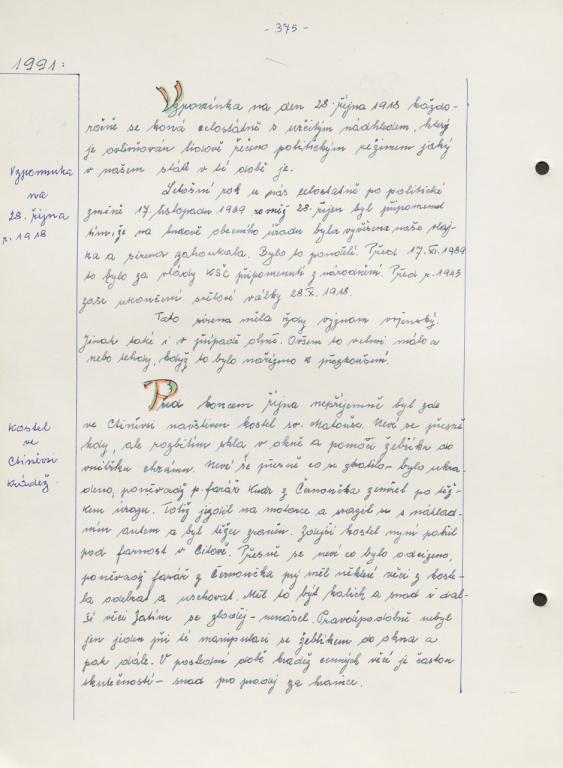 - 375 -
1991:
Vzpomínka
na
28. října
r. 1918
Vzpomínka na den 28. října 1918 každo-
ročně se koná celostátně s určitým nádhledem, který
je ovlivňován lidově řečeno politickým režimem jaký
v našem státě v té době je.
Letošní rok u nás celostátně po politické
změně 17. listopadu 1989 rovněž 28. říjen byl připomenut
tím, že na budově obecního úřadu byla vyvěšena naše vlaj-
ka a sirena zahoukala. Bylo to pondělí. Před 17. XI. 1989
to bylo za vlády KSČ připomenutí z národnění. Před r. 1945
zase ukončení světové války 28. X. 1918.
Tato sirena měla vždy význam vojenský.
Jinak také i v případě ohně. Ovšem to velmi málo a
nebo tehdy, když to bylo nařízeno k přezkoušení.
Kostel
ve
Ctiněvsi
krádež.
Před koncem října nepříjemně byl zde
ve Ctiněvsi navštíven kostel sv. Matouše. Neví se přesně
kdy, ale rozbitím skla v okně a pomocí žebříku do
vnitřku chrámu. Neví se přesně co se ztratilo - bylo ukra-
deno, poněvadž p. farář Kudr z Černoučka zemřel po těž-
kém úrazu. Totiž jezdil na motorce a srazil se s náklad-
ním autem a byl těžce zraněn. Zdejší kostel nyní patřil
pod farnost v Cítově. Přesně se neví co bylo odcizeno,
poněvadž farář z Černoučka prý měl některé věci z koste-
la odebrat a uschovat. Měl to být kalich a snad i dal-
ší věci. Zatím se zloděj - nenašel. Pravděpodobně nebyl
jen jeden při té manipulaci se žebříkem do okna a
pak dále. V poslední době krádež cenných věcí je častou
skutečností - snad pro prodej za hranice.